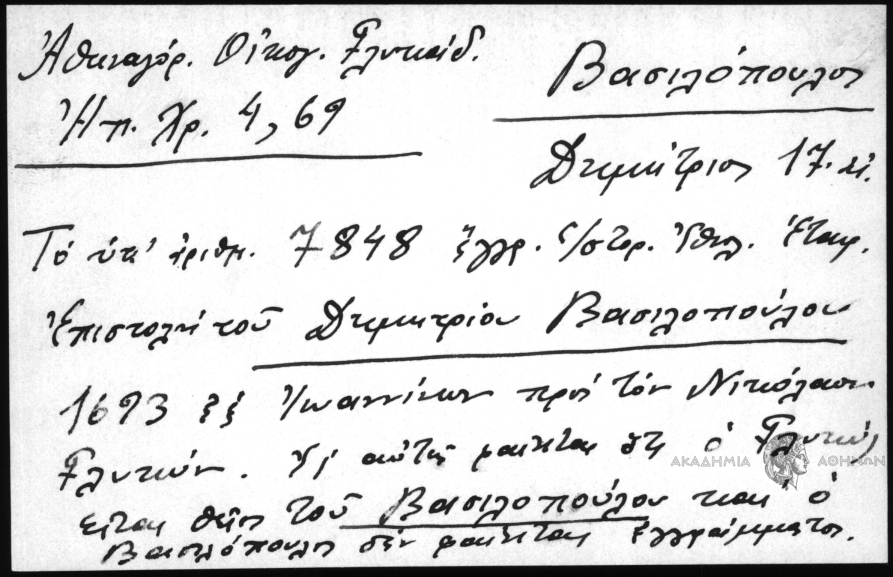 Ἀθηναγόρ. Οἰκογ. Γλυκαίδ.
Ἠπ. Χρ. 4, 69
Βασιλόπουλος
Δημήτριος 17. αἰ.
Τό ὑπ' ἀριθμ. 7848 ἔγγρ. Ἱστορ. Ἐθνολ. Ἑταιρ.
Ἐπιστολή τοῦ Δημητρίου Βασιλοπούλου
1693 ἐξ Ἰωαννίνων πρός τόν Νικόλαον
Γλυκύν. Ἐξ αὐτῆς φαίνεται ὅτι ὁ Γλυκύς
εἶται θεῖος τοῦ Βασιλοπούλου καί ὁ
Βασιλόπουλος δέν φαίνεται ἐγγράμματος.
ΑΚΑΔΗΜΙΑ ΑΘΗΝΩΝ